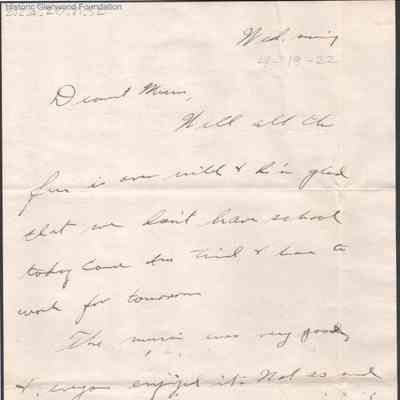 Historic Glenwood Foundation
Wed. evening
4-19-22
Dearest Mum,
Well all the
fun is over with & I'm glad
that we don't have school
today cause I'm tired & have to
work for tomorrow
The music was very good,
& everyone enjoyed it. Not so